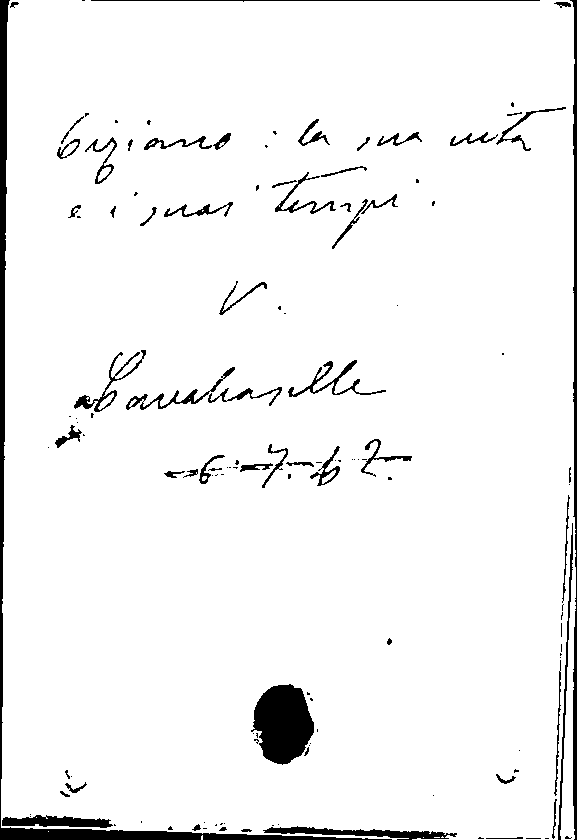 Tiziano : la sua vita
e i suoi tempi.
V.
Cavalcaselle
6.7.62.